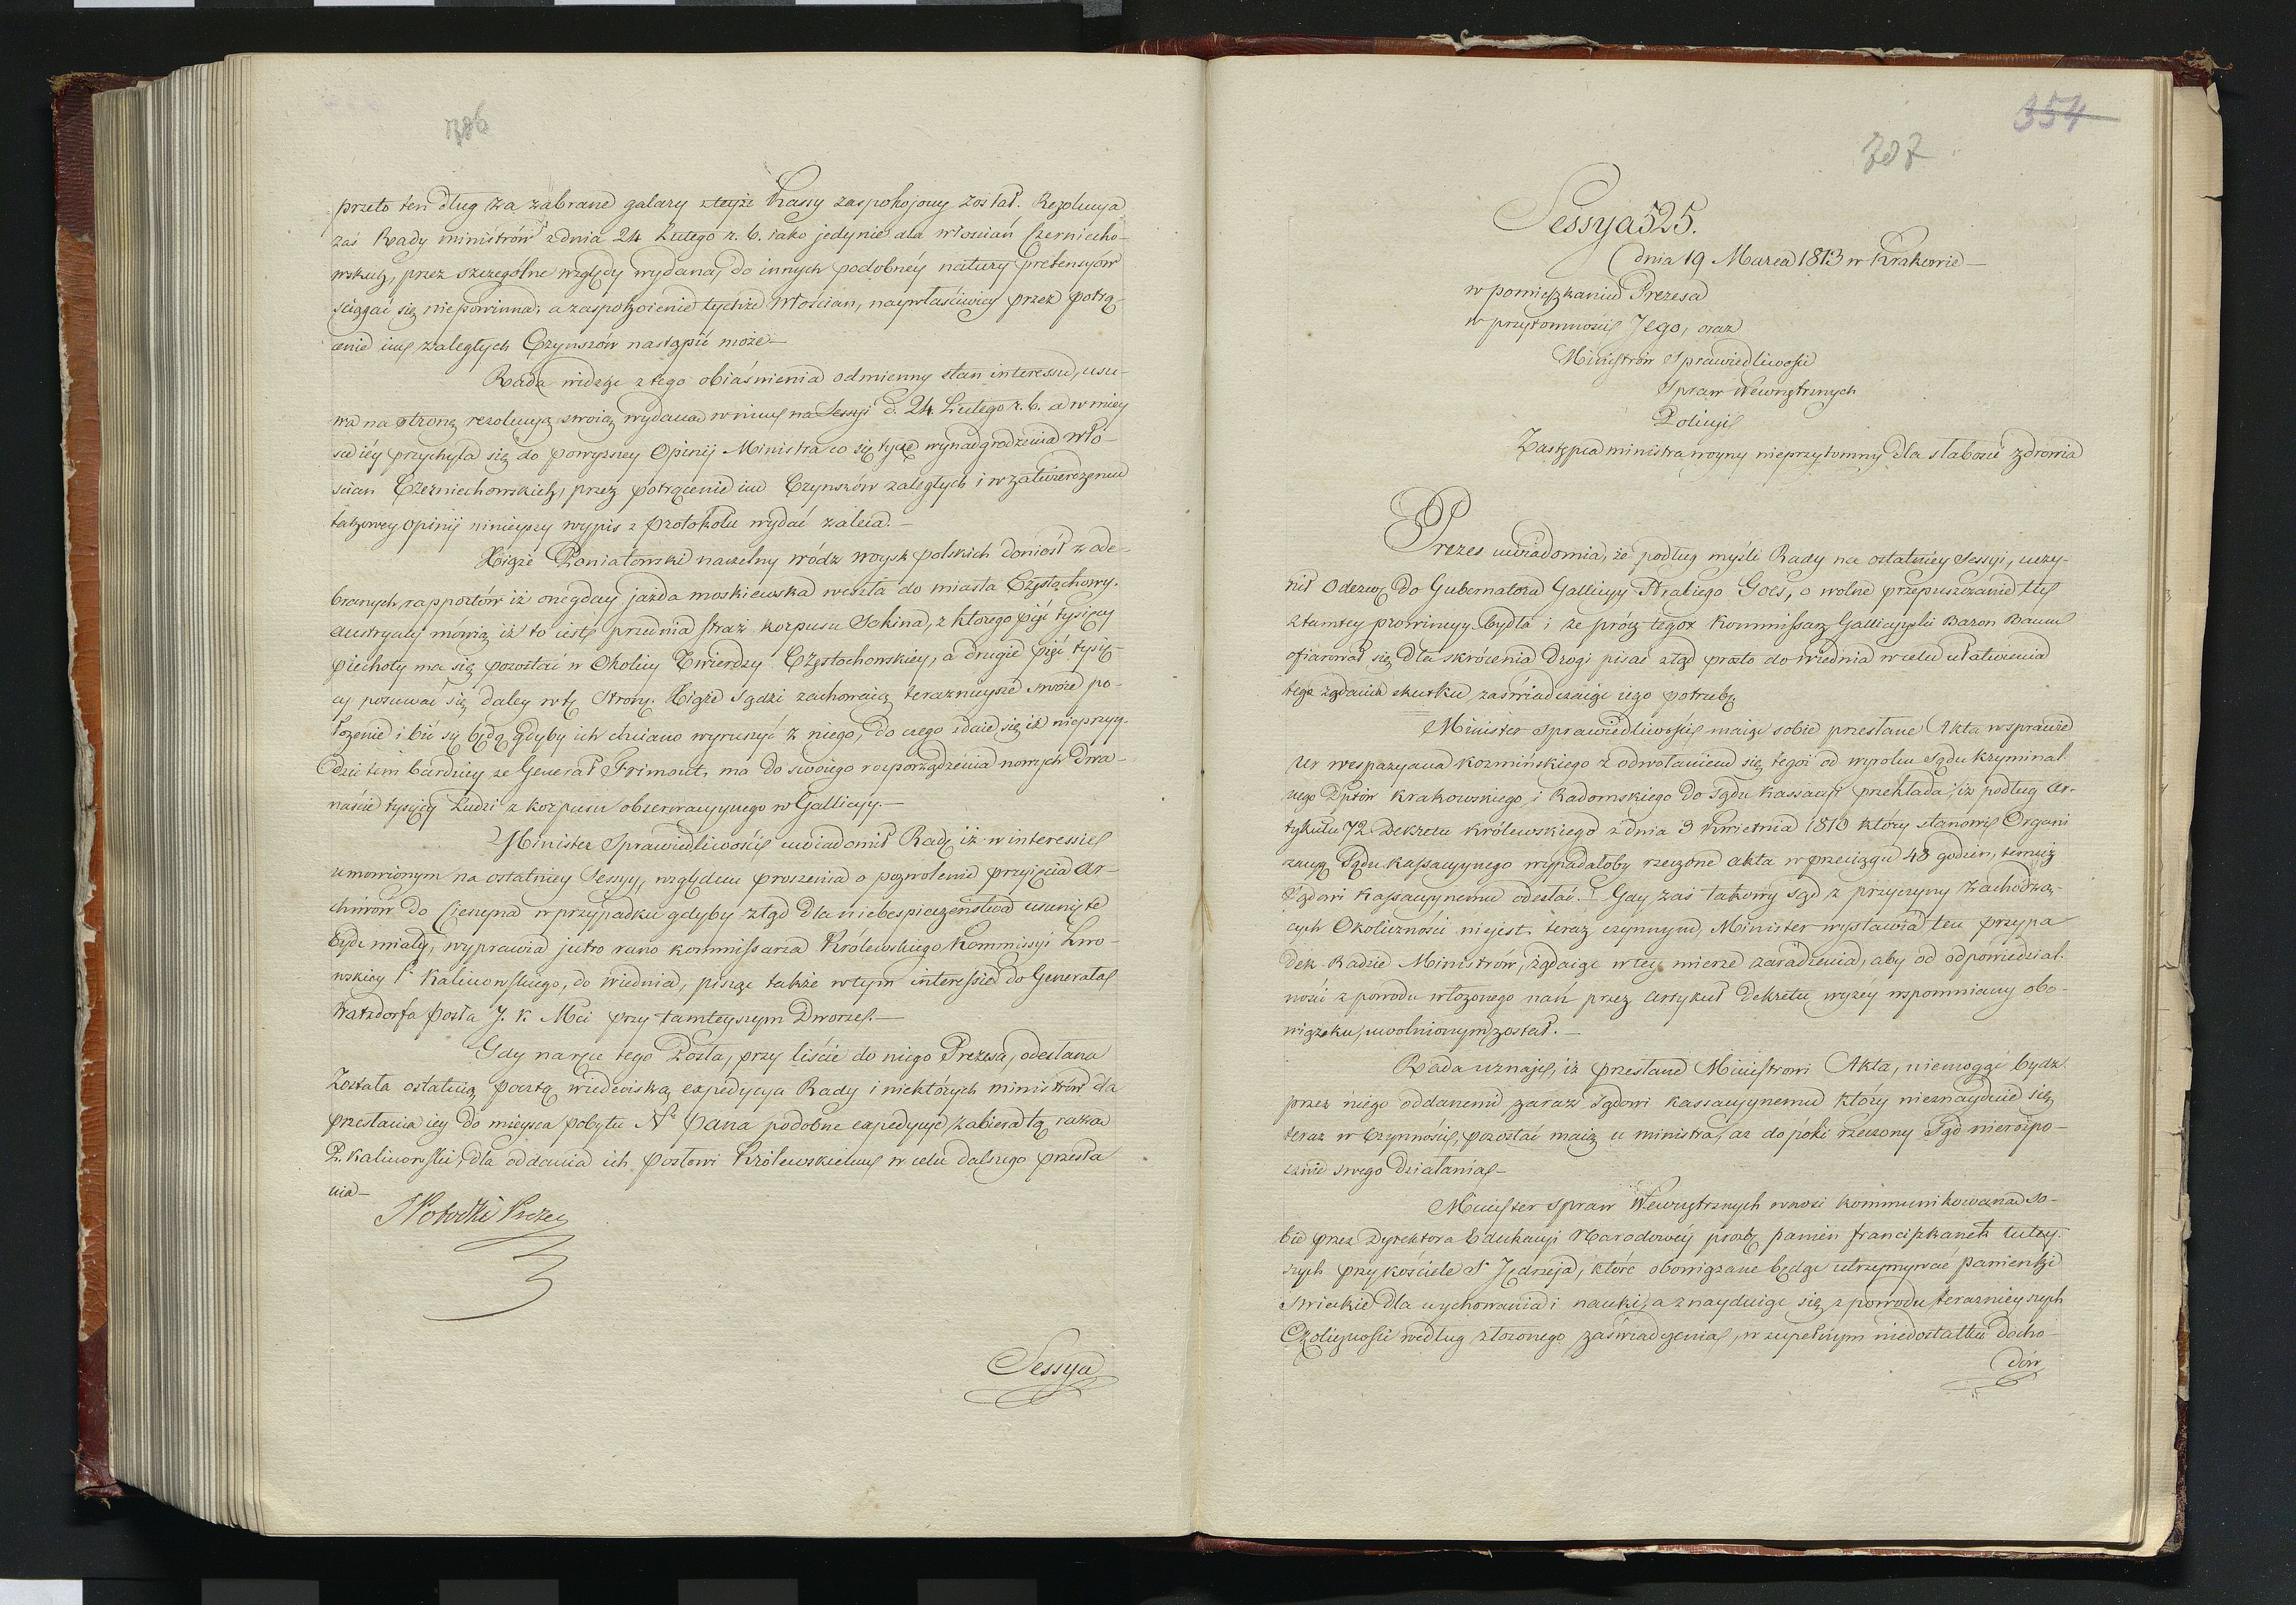 706
przeto ten dług za zabrane galary z teyże Kassy zaspokojony został. Rezolucya
zaś Rady ministrów z dnia 24 Lutego r. b. iako jedynie dla włościan Czerniecho-
wskich, przez szczególne względy wydana, do innych podobnéy natury pretensyów
ściągać się niepowinna, a zaspokoienie tychże Włoscian, naywłaściwiey przez potrą-
cenie im zaległych Czynszów nastąpić może —
Rada widząc z tego obiaśnienia odmienny stan interessu, usu-
wa na stronę rezolucyą swoią wydaną w nim na Sessyi d. 24 Lutego r. b. a w miey
sce iéy przychyla się do powyższey Opinij Ministra co się tycze wynadgrodzenia Wło-
ścian Czerniechowskich, przez potrącenie im Czynszów zaległych i w zatwierdzeniu
takowey opinij ninieyszy wypis z protokółu wydać zaleca. —
Xiąże Poniatowski naczelny wódz woysk polskich doniósł z ode-
branych rapportów iż onegday jazda moskiewska weszła do miasta Częstochowy.
Austryacy mówią iż to iest przednia straż korpusu Sakina, z którego pięć tysięcy
piechoty ma się pozostać w Okolicy Twierdzy Częstochowskiey, a drugie pięć tysię-
cy posuwać się daley w tę Stronę. Xiąże Sądzi zachowaią teraznieysze swoie po-
łożenie i bić się będą gdyby ich chciano wyruszyć z niego, do czego zdaie się iż nieprzyy-
dzie tem bardziey ze Generał Frimont, ma do swoiego rozporządzenia nowych dwa-
naście tysięcy Ludzi z korpusu obzerwacyynego w Gallicyy. —
Minister Sprawiedliwości uwiadomił Radę iż w interessie
umowionym na ostatniey Sessyy, względem proszenia o pozwolenie przyięcia Ar-
chiwów do Cieszyna w przypadku gdyby ztąd dla niebespieczeństwa usunięte
bydź miały, wyprawia jutro rano kommissarza Królewskiego Kommissyi Lwo-
wskiey P. Kalinowskiego, do Wiednia, pisząc także w tym interessie do Generała
Watzdorfa Posła J. K. Mci przy tamteyszym Dworze. —
Gdy na ręce tego Posła, przy liście do niego Prezesa, odesłana
została ostatnią pocztą wiedeńską expedycya Rady i niektórych ministrów dla
przesłania iey do mieysca pobytu N° Pana podobne expedycye zabiera tą rażą
P. Kalinowski, dla oddania ich Posłowi Królewskiemu w celu dalszego przesła
nia —
Potocki Prezes
Sessya
354
707
Sessya 525.
dnia 19 Marca 1813 w Krakowie —
w pomięszkaniu Prezesa
w przytomności Jego, oraz
Ministrów Sprawiedliwości
Spraw Wewnętrznych
Policyi
Zastępca ministra woyny nieprzytomny dla słabości zdrowia
Prezes uwiadomia, że podług myśli Rady na ostatniey Sessyi, uczy-
nił Odezwę do Gubernatora Gallicyy Hrabiego Goes, o wolne przepuszczanie tu
z tamtey prowincyy bydła i że prócz tegoż Kommissarz Gallicyyski Baron Baum
ofiarował się dla skrócenia drogi pisać ztąd prosto do Wiednia w celu ułatwienia
tego żądania skutku, zaświadczaiąc iego potrzebę
Minister Sprawiedliwości maiąc sobie przesłane Akta w sprawie
Ur Wespazyana Kozmińskiego z odwołaniem się tegoż od wyroku Sądu kryminal
nego Dptów Krakowskiego i Radomskiego do Sądu Kassacyi przekłada, iż podług Ar-
tykułu 72 Dekretu Królewskiego z dnia 3 Kwietnia 1810 który stanowi Organi
zacyą Sądu Kassacyynego wypadałoby rzeczone akta w przeciągu 48 godzin, temuż
Sądowi Kassacyynemu odesłać. Gdy zaś takowy Sąd z przyczyny zachodzą-
cych Okoliczności nieiest teraz czynnym, Minister wystawia ten przypa
dek Radzie Ministrów, żądaiąc w tey mierze zaradzenia, aby od odpowiedzial-
ności z powodu włożonego nań przez Artykuł Dekretu wyzéy wspomniany obo-
wiązku, uwolnionym został. —
Rada uznaje, iż przesłane Ministrowi Akta, niemogąc bydź
przez niego oddanemi zaraz Sądowi Kassacyynemu który nieznayduie się
teraz w Czynności, pozostać maią u ministra, aż dopóki rzeczony Sąd nierozpo-
cznie swego działania —
Minister Spraw Wewnętrznych wnosi kommunikowaną so-
bie przez Dyrektora Edukacyi Narodowéy prośbę panien franciszkanek tutey-
szych przy kościele S° Jędrzeja, które obowiązane będąc utrzymywać panienki
świeckie dla wychowania i nauki, a znayduiąc się z powodu teraznieyszych
Okoliczności według złożonego zaświadczenia, w zupełnym niedostatku docho-
dów